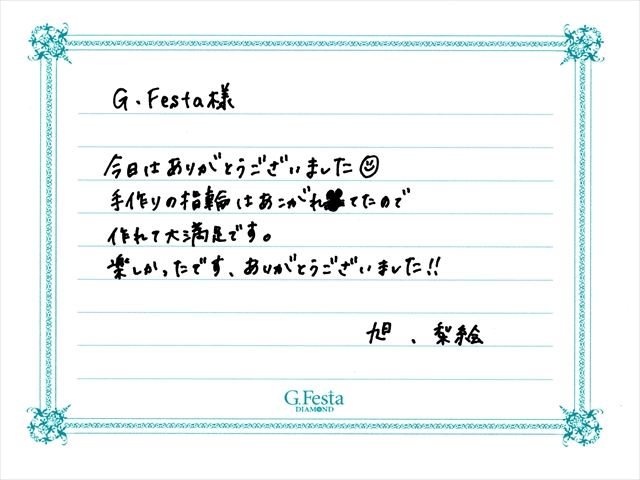 G.Festa様
今日はありがとうございました
手作りの指輪はあこがれてたので
作れて大満足です。
楽しかったです、ありがとうございました!!
旭、梨絵
G.Festa
DIAMOND